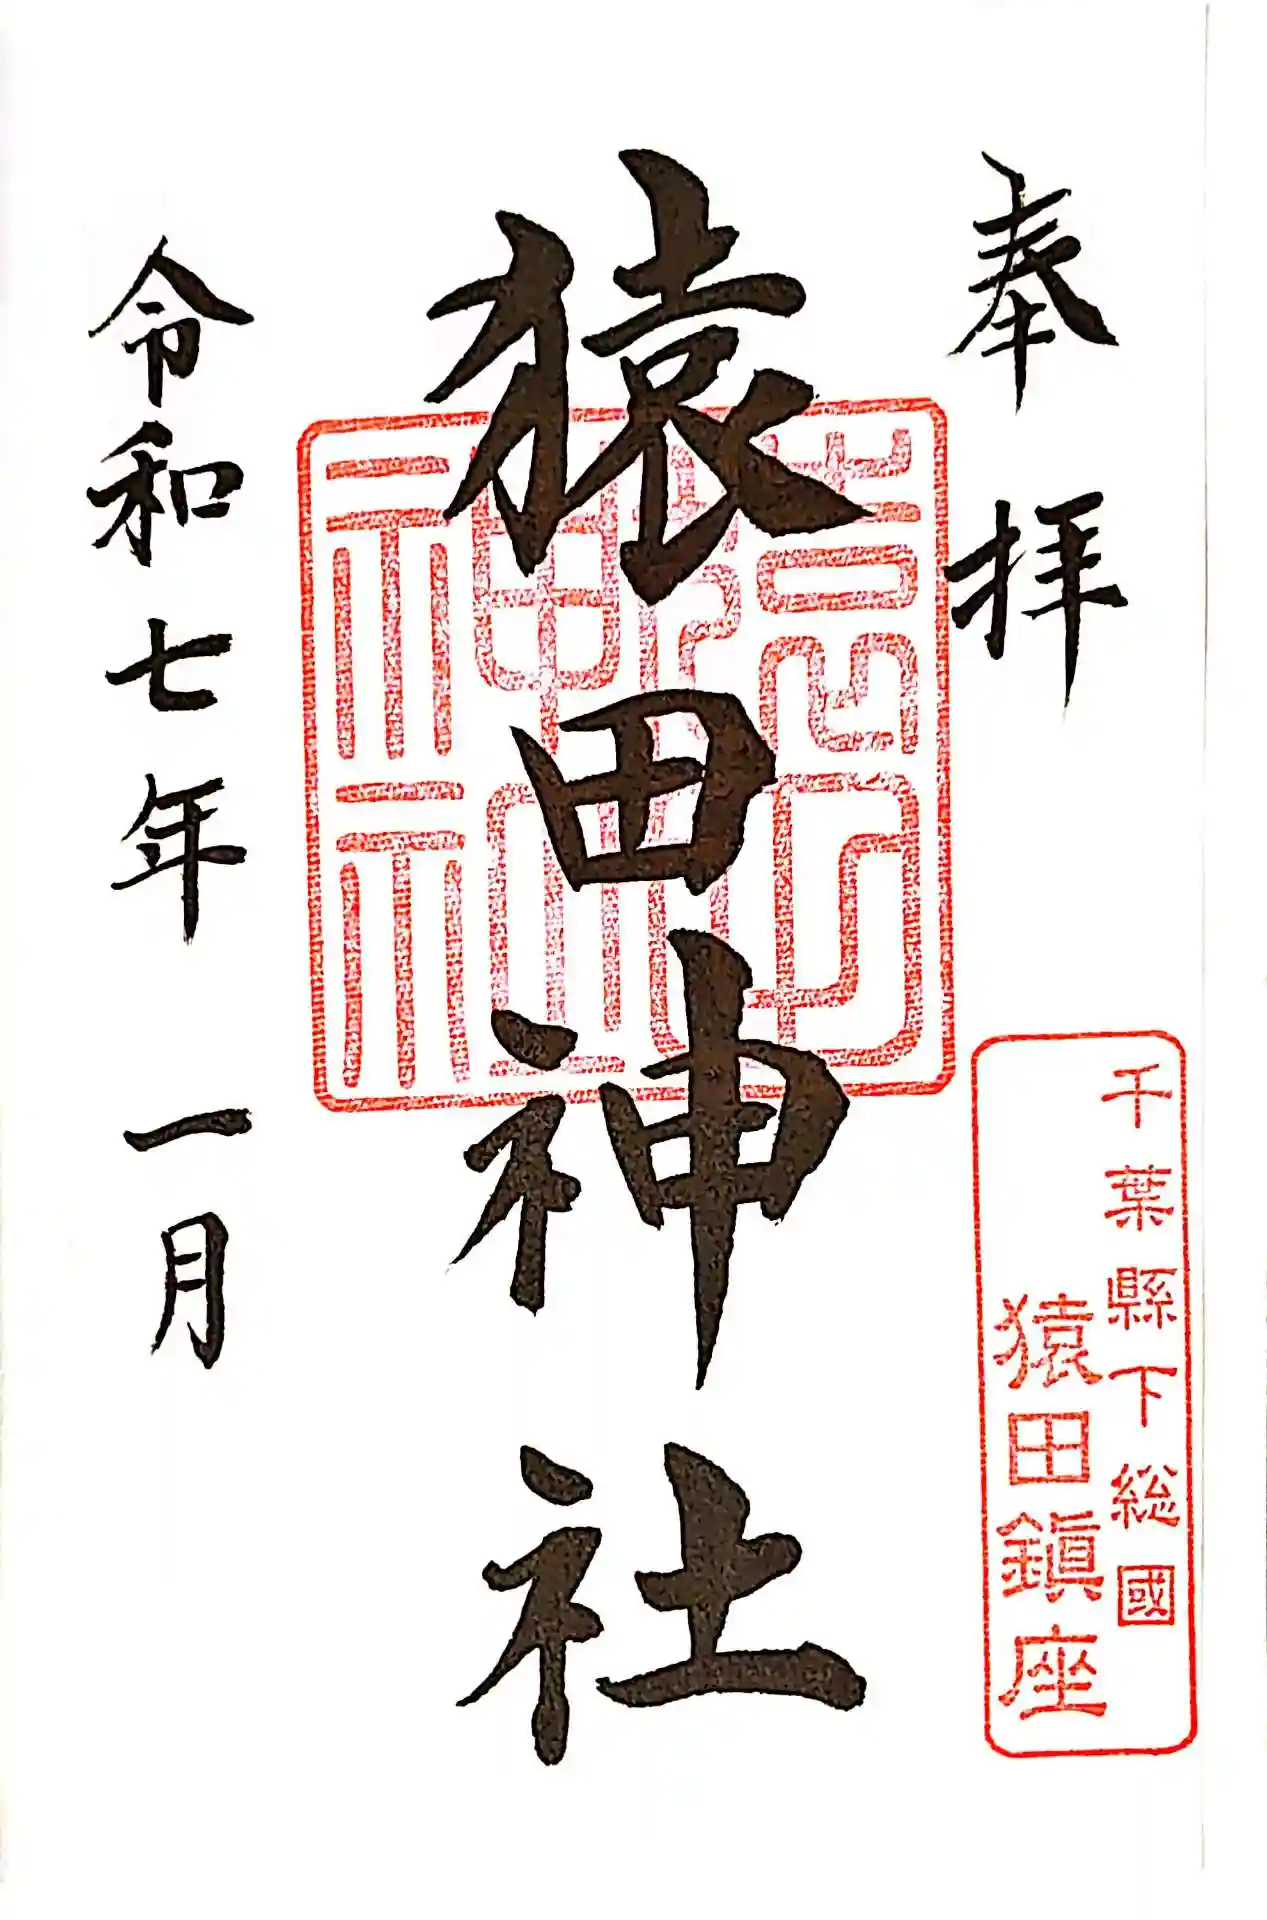 奉拝
千葉縣下総國
猿田鎮座
猿田神社
令和七年 一月